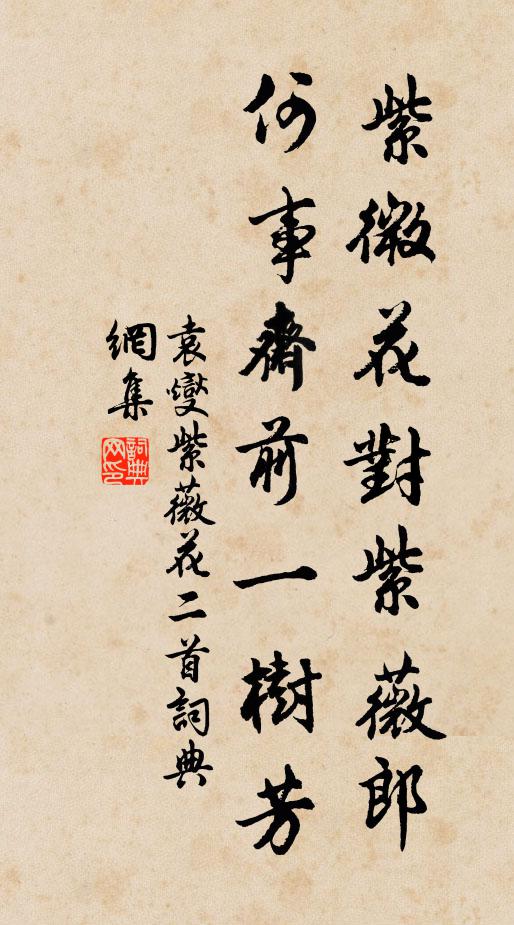 紫微花對紫薇郎
何事齋前一樹芳
袁燮紫薇花二首詞典
網集
詞典网印